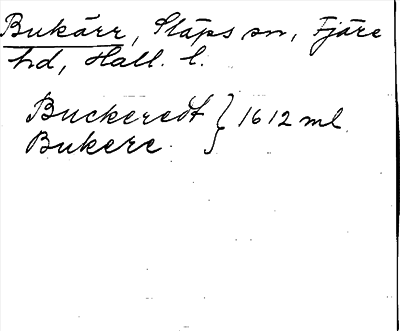 Bukärr, Släps sn, Fjäre
hd, Hall. l.
Buckeredt } 1612 ml.
Bukere